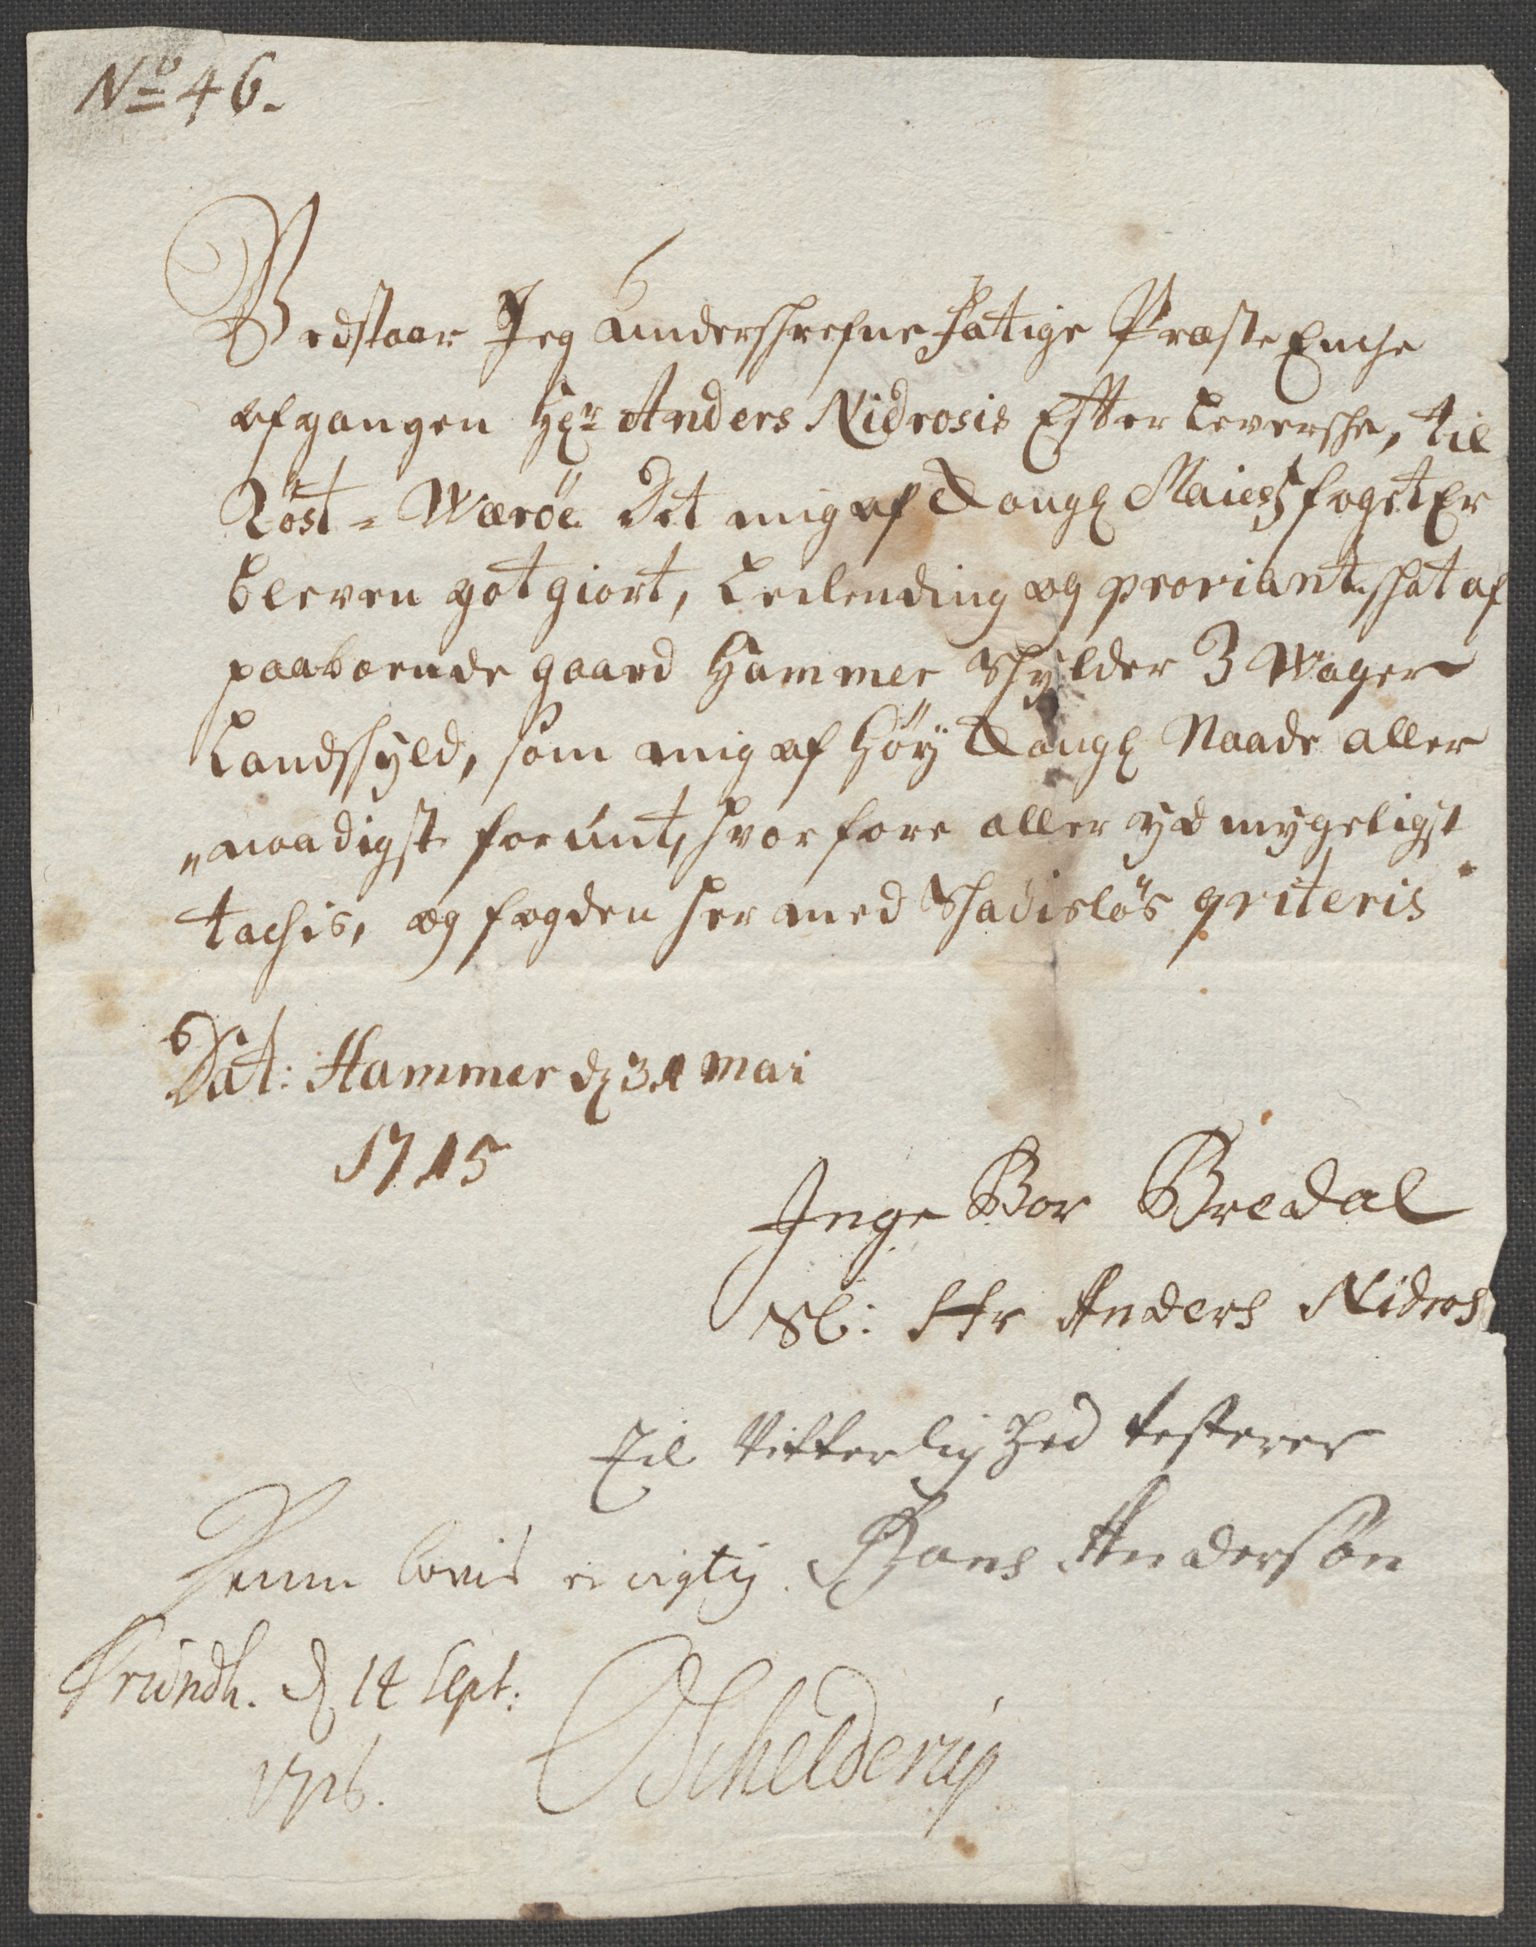 No 46.
Bestaar Jeg underschrefne fatige Præste Enche
afgangen Hr: Anders Nidrosis Efter Leversche, til
Röst = Wæröe Det mig af Kongl Maiestz foget Er
bleven gotgiort, Leilending og proviant schat af
paaboende gaard Hammer Schylder 3 Woger
Landschyld, som mig af Höy Kongl Naade aller
"naadigst forünt, hvorfore aller ydmygeligst
tachis, og fogden her med Schadislös qviteris
Dat: Hammer d 31 Mai
1715
Inge Bor Bredal
Sl: Hr Anders Nidros
Til Vitterlighed testerer
Hans Andersön
Denne bevis er rigtig
Trundh. d 14 Sept:
1716.
Schelderup